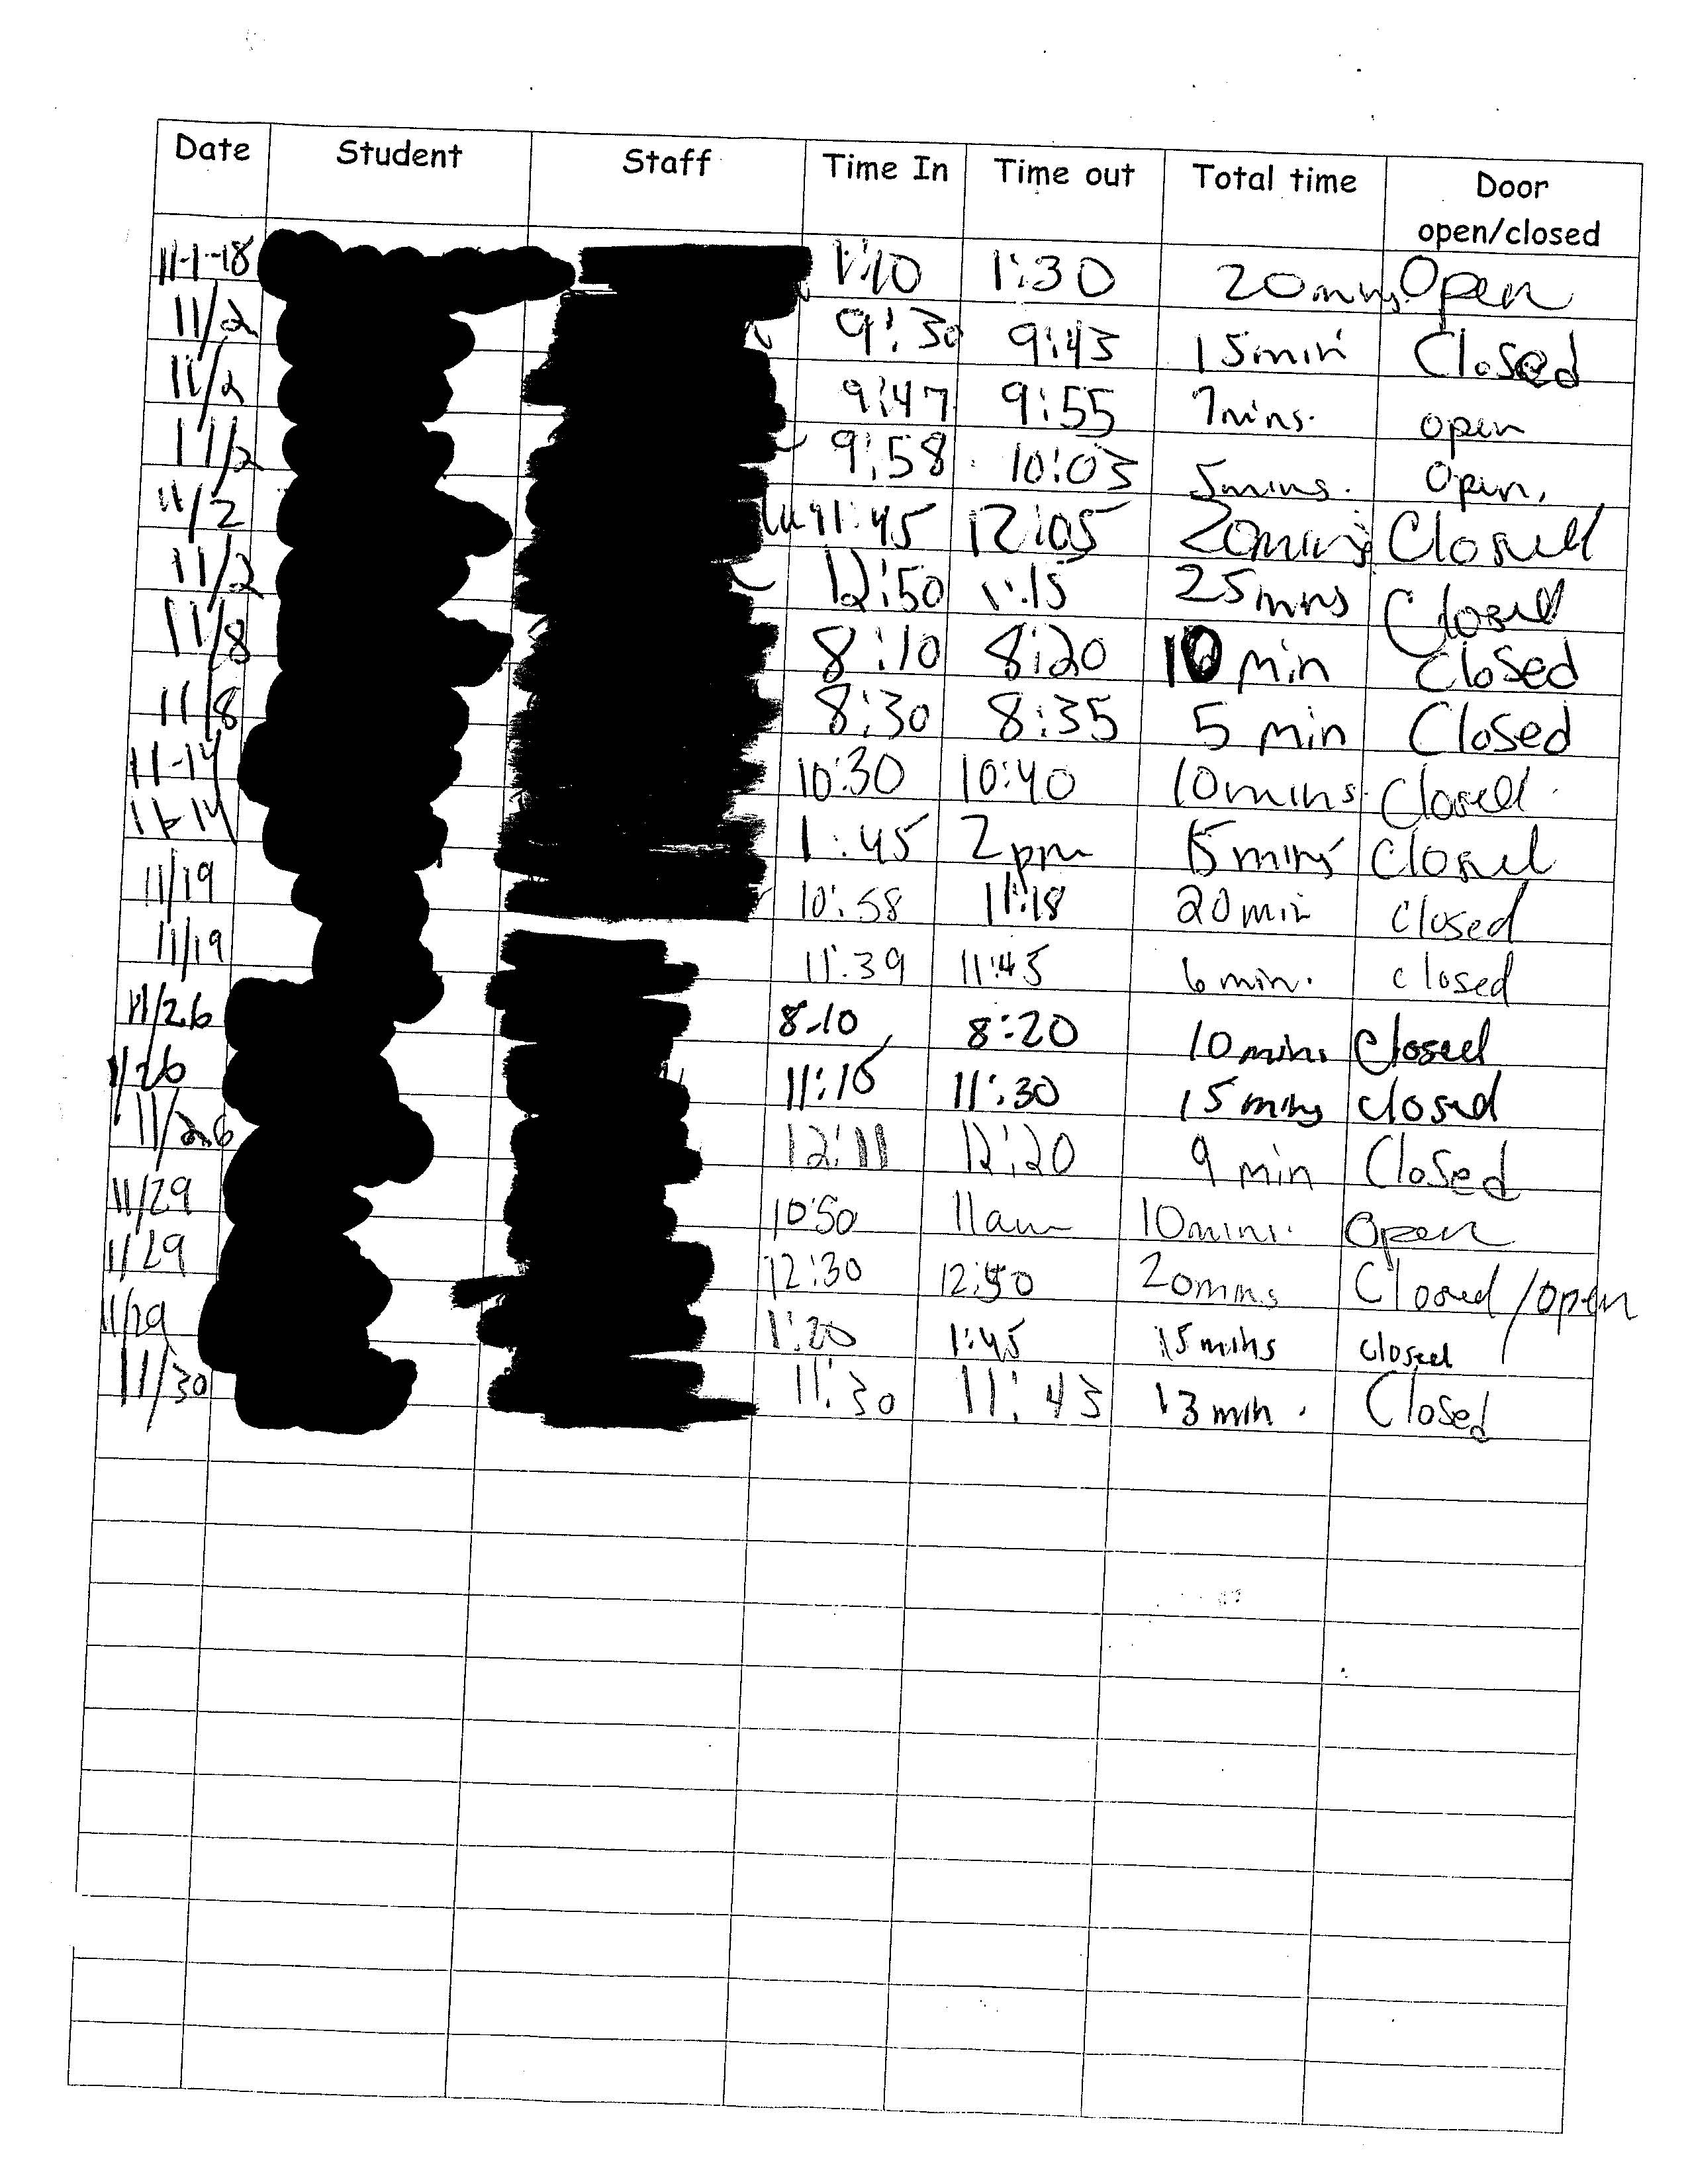 Date Student Staff Time In Time out Total time Door open/closed
11-1-18 1:10 1:30 20mins. Open
11/2 9:30 9:43 15min Closed
11/2 9:47 9:55 7mins. open
11/2 9:58 10:03 5mins. Open.
11/2 11:45 12:05 20mins Closed
11/2 12:50 1:15 25mins Closed
11/8 8:10 8:20 10 min Closed
11/8 8:30 8:35 5 min Closed
11-14 10:30 10:40 10mins. Closed.
11-14 1:45 2pm 15mins Closed
11/19 10:58 11:18 20min closed
11/19 11:39 11:45 6min. closed
11/26 8-10 8:20 10mins Closed
11/26 11:15 11:30 15mins closed
11/26 12:11 12:20 9 min Closed
11/29 10:50 11am 10mins. Open
11/29 12:30 12:50 20mins Closed/open
11/29 1:20 1:45 15mins closed
11/30 11:30 11:43 13min. Closed